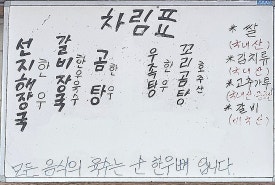 차림표
선지해장국 한우
갈비장국 한우육수
곰탕 한우
우족탕 한우
꼬리곰탕 호주산
* 쌀
(국내산)
* 김치류
(국내산)
* 고추가루
(국내산)
* 갈비
(미국산)
모든 음식의 육수는 순 한우뼈 입니다.